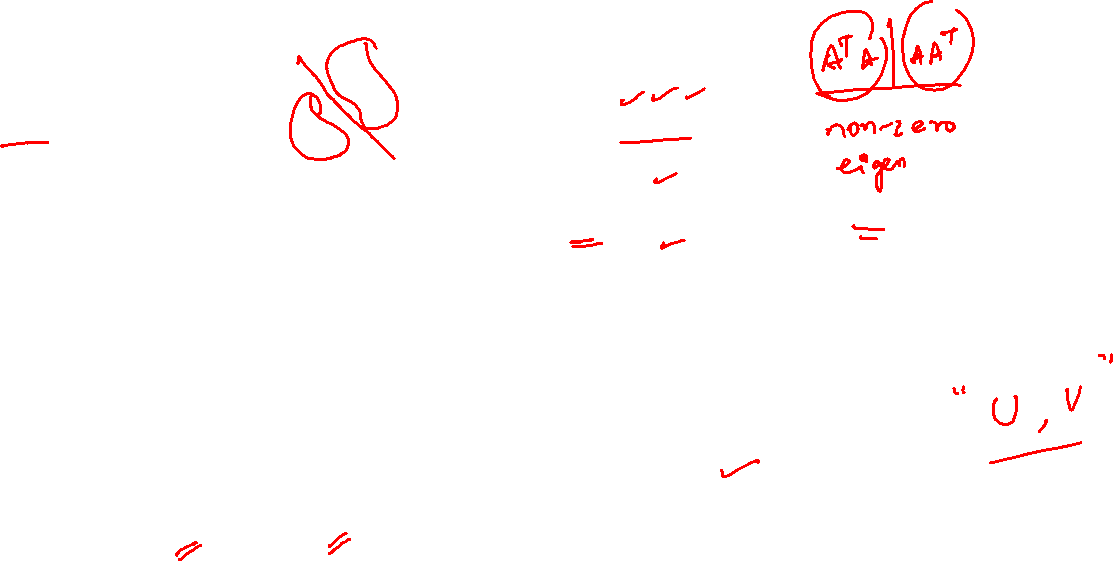 AᵀA | AAᵀ
non-zero
eigen
" U , V "